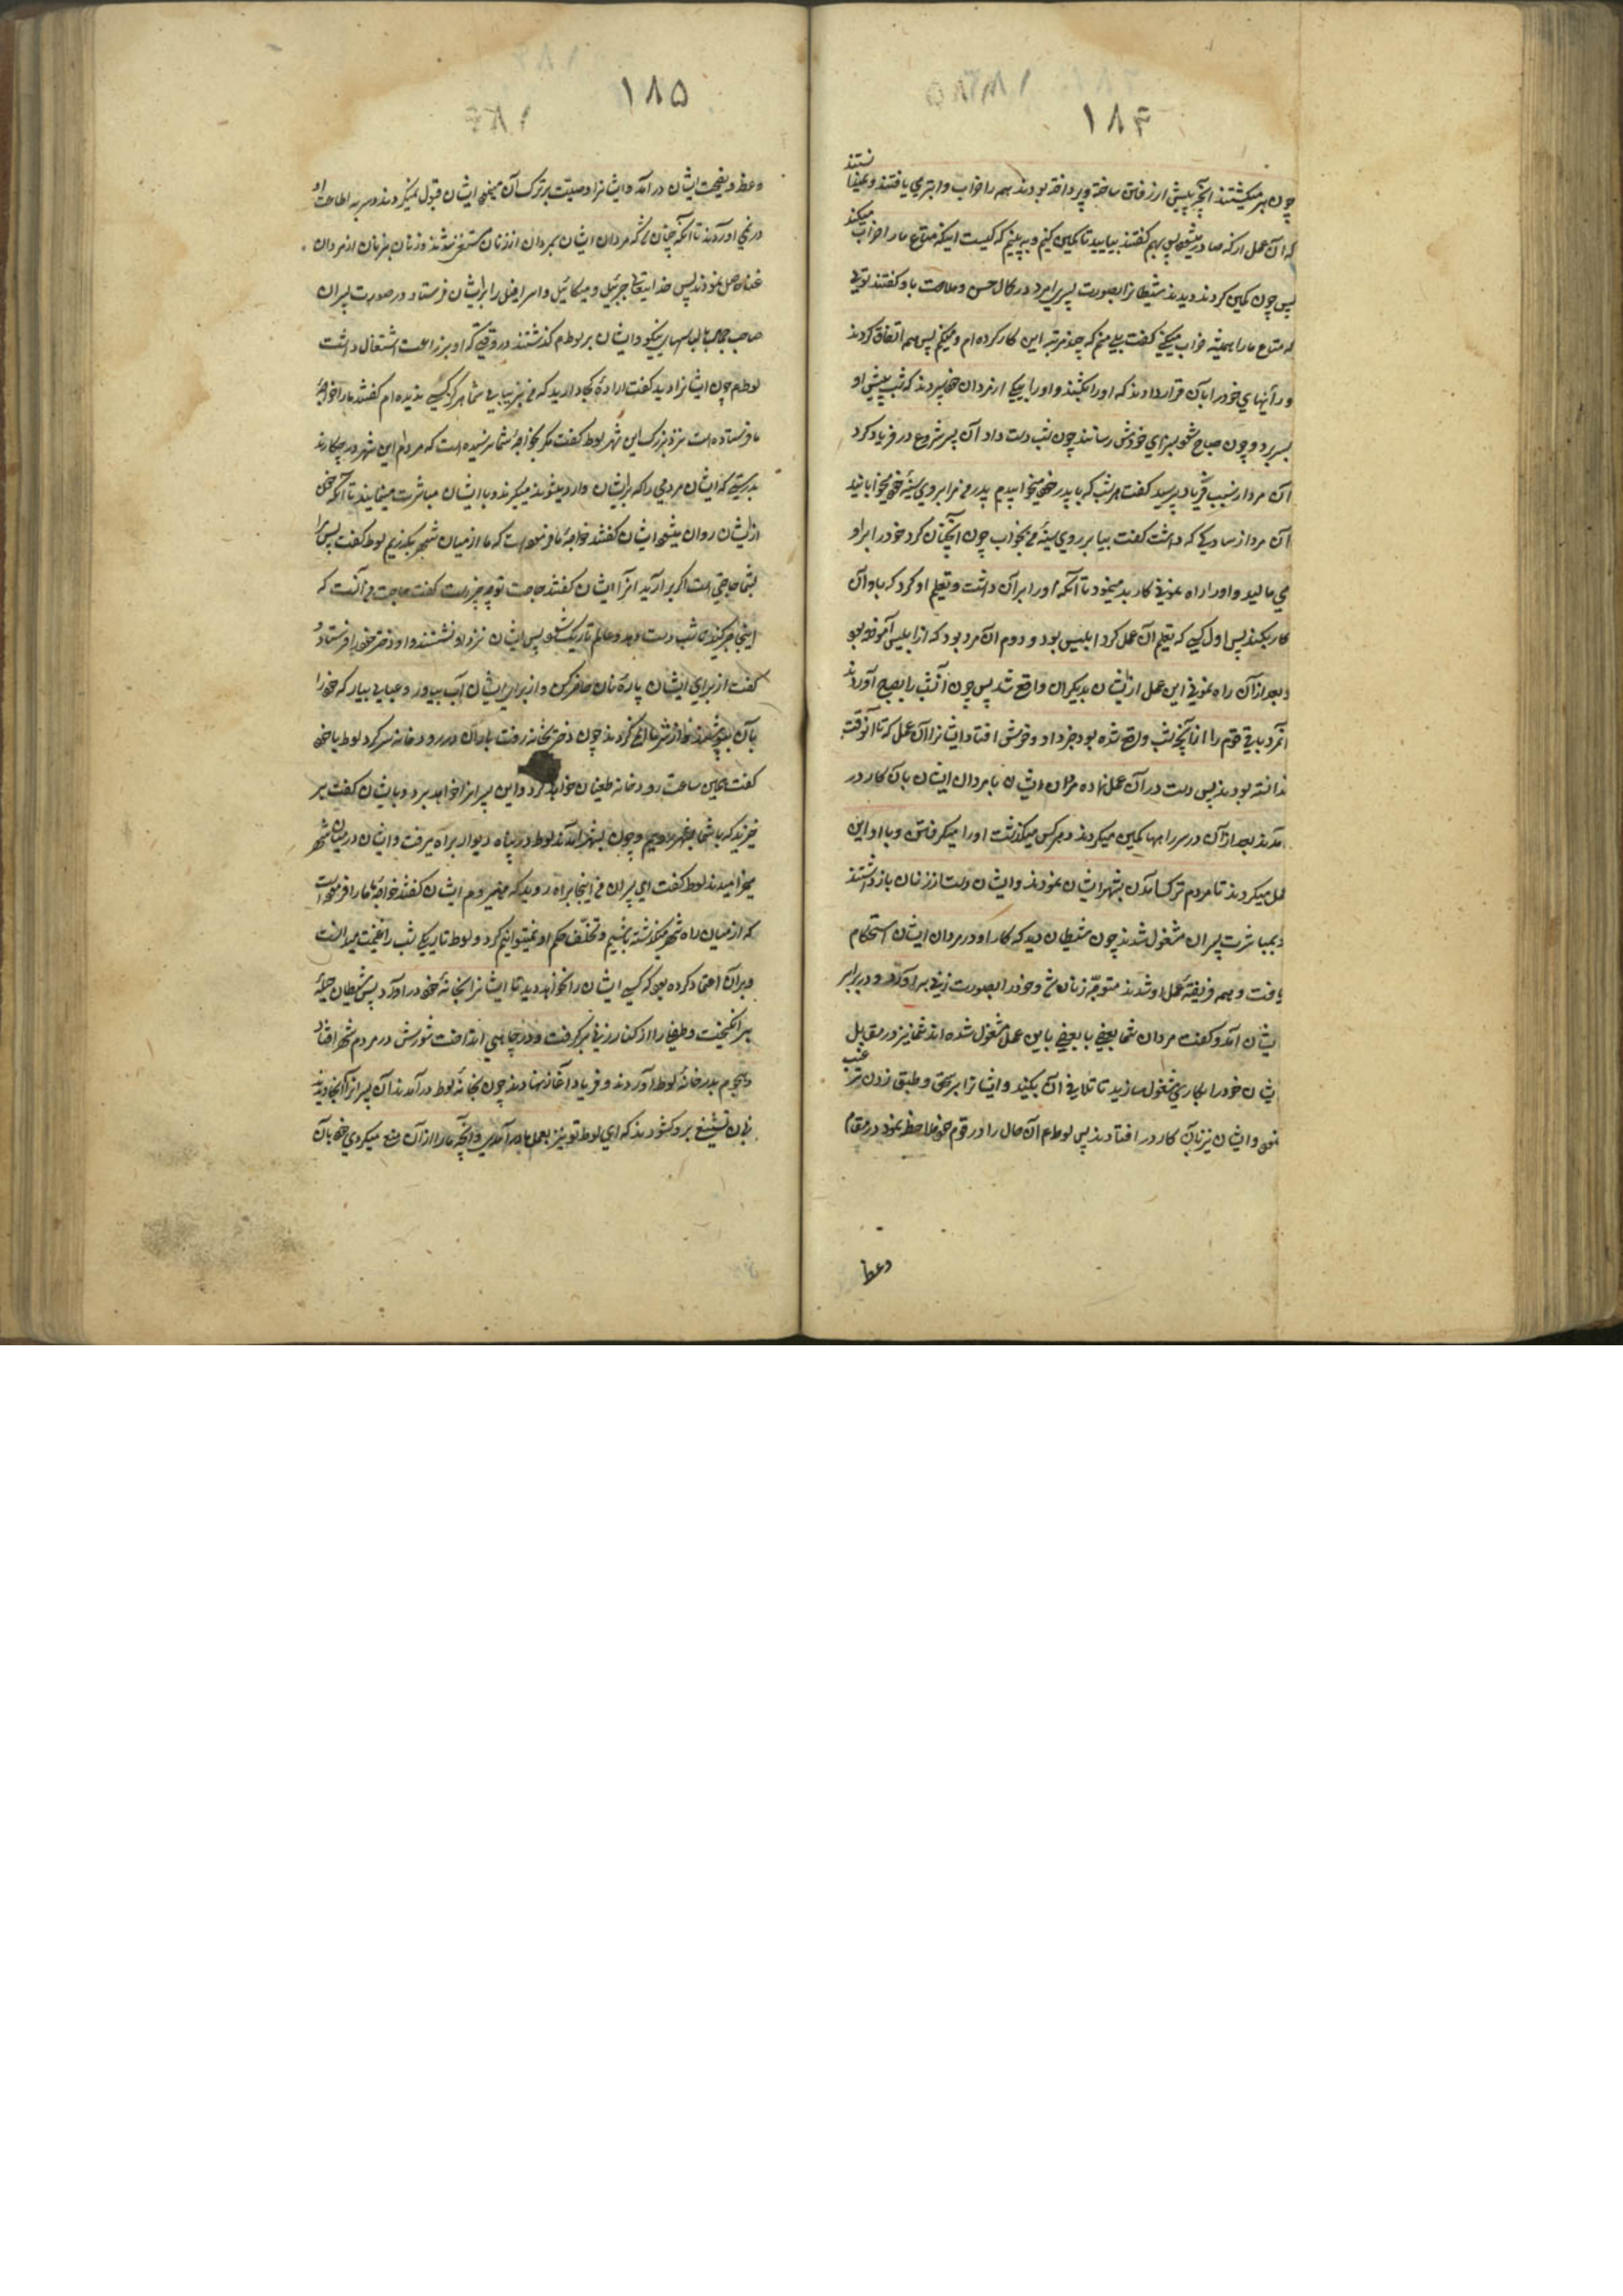 ۱۸۴
چون بر میگشتند آنچه پیش از رفتن ساخته و پرداخته بودند همه را خراب و ابتر می یافتند و نمیدانستند
که آن عمل از که صادر میشود پس بهم گفتند بیایید تا کمین کنیم و به بینیم که کیست اینکه متاع ما را خراب میکند
پس چون کمین کردند و دیدند شیطانرا بصورت پسر امرد در کمال حسن و ملاحت باو گفتند تویی
که متاع ما را همیشه خراب میکنی گفت بلی منم که چند مرتبه این کار کرده ام و میکنم پس همه اتفاق کردند
و رأیهای خود را بآن قرار دادند که او را بکشند و او را بیکی از مردان خود سپردند که شب پیش او
بسر برد و چون صباح شود بسزای خودش رسانند چون شب دست داد آن پسر شروع در فریاد کرد
آن مرد از سبب فریاد پرسید گفت هر شب که با پدر خود میخوابیدم پدر مرا بر روی سینهٔ خود میخوابانید
آن مرد از ساده‌ای که داشت گفت بیا بر روی سینهٔ من بخواب چون آنچنان کرد خود را بر او
می مالید و او را راه نمونی کار بد مینمود تا آنکه او را بر آن داشت و تعلیم او کرد که با او آن
کار بکند پس اول کسی که تعلیم آن عمل کرد ابلیس بود و دوم آن مرد بود که از ابلیس آموخته بود
و بعد از آن راه نمونی این عمل از ایشان بدیگران واقع شد پس چون آنشب را بصبح آوردند
آنمرد باقی قوم را از آنچه شب واقع شده بود خبر داد و خوش افتاد ایشانرا آن عمل که تا آنوقت
ندانسته بودند پس دست در آن عمل نهاده مردان ایشان با مردان ایشان بآن کار در
آمدند بعد از آن در سر راهها کمین میکردند و هر کس میگذشت او را میگرفتند و با او این
عمل میکردند تا مردم ترک آمدن بشهر ایشان نمودند و ایشان دست از زنان باز داشتند
و بمباشرت پسران مشغول شدند چون شیطان دید که کار او در مردان ایشان استحکام
یافت و همه فریفتهٔ عمل او شدند متوجّه زنان شد و خود را بصورت زنی برآورد و در برابر
ایشان آمد و گفت مردان شما بعضی با بعضی باین عمل مشغول شده اند شما نیز در مقابل
ایشان خود را بکاری مشغول سازید تا تلافی آن بکنید و ایشانرا بر سحق و طبق زدن ترغیب
نمود و ایشان نیز بآن کار در افتادند پس لوط ع آن حال را در قوم خود ملاحظه نمود در مقام
وعظ
۱۸۵
وعظ و نصیحت ایشان در آمد و ایشانرا وصیّت بر ترک آن مینمود ایشان قبول نمیکردند و سر به اطاعت او
در نمی آوردند تا آنکه چنان شد که مردان ایشان بمردان از زنان مستغنی شدند و زنان بزنان از مردان
غنا حاصل نمودند پس خدایتعالی جبرئیل و میکائیل و اسرافیل را بر ایشان فرستاد در صورت پسران
صاحب جمال با لباسهای نیکو و ایشان بر لوط ع گذشتند در وقتی که او بزراعت اشتغال داشت
لوط ع چون ایشانرا دید گفت ارادهٔ کجا دارید که من بزیبایی شما هرگز کسی ندیده ام گفتند ما را خواجهٔ
ما فرستاده است نزد بزرگ این شهر لوط گفت مگر بخواجهٔ شما نرسیده است که مردم این شهر در چکارند
بدرستی که ایشان مردمی را که بر ایشان وارد میشوند میگیرند و با ایشان مباشرت مینمایند تا آنکه خون
از ایشان روان میشود ایشان گفتند خواجهٔ ما فرموده است که ما از میان شهر بگذریم لوط گفت پس مرا
بشما حاجتی است اگر برآرید آنرا ایشان گفتند حاجت تو چه چیز است گفت حاجت من آنست که
اینجا صبر کنید تا شب دست دهد و عالم تاریک شود پس ایشان نزد او نشستند و او دختر خود را فرستاد و
گفت از برای ایشان پارهٔ نان حاضر کن و از برای ایشان آب بیاور و عبایی بیار که خود را
بآن بپوشند و از سرما ایمن گردند چون دختر بخانه رفت باران در رودخانه سر کرد لوط با خود
گفت همین ساعت رودخانه طغیان خواهد کرد و این پسرانرا خواهد برد و بایشان گفت بر
خیزید که با شما بشهر رویم و چون بشهر آمدند لوط در پناه دیوار براه میرفت و ایشان در میان شهر
میخرامیدند لوط گفت ای پسران من اینجا براه روید که من میروم ایشان گفتند خواجهٔ ما ما را فرموده است
که از میان راه شهر گذشته باشیم و تخلّف حکم او نمیتوانیم کرد و لوط تاریکی شب را غنیمت میدانست
و بر آن اعتماد کرده بود که کسی ایشان را نخواهد دید تا ایشانرا بخانهٔ خود در آورد پس شیطان حیلهٔ
برانگیخت و طفلی را از کنار زنی برگرفت و در چاهی انداخت شورش در مردم شهر افتاد
و هجوم بدر خانهٔ لوط آوردند و فریاد آغاز نهادند چون بخانهٔ لوط در آمدند آن پسرانرا آنجا دیدند
زبان تشنیع برو گشودند که ای لوط تو نیز بعمل ما در آمدی و آنچه ما را از آن منع میکردی خود بآن